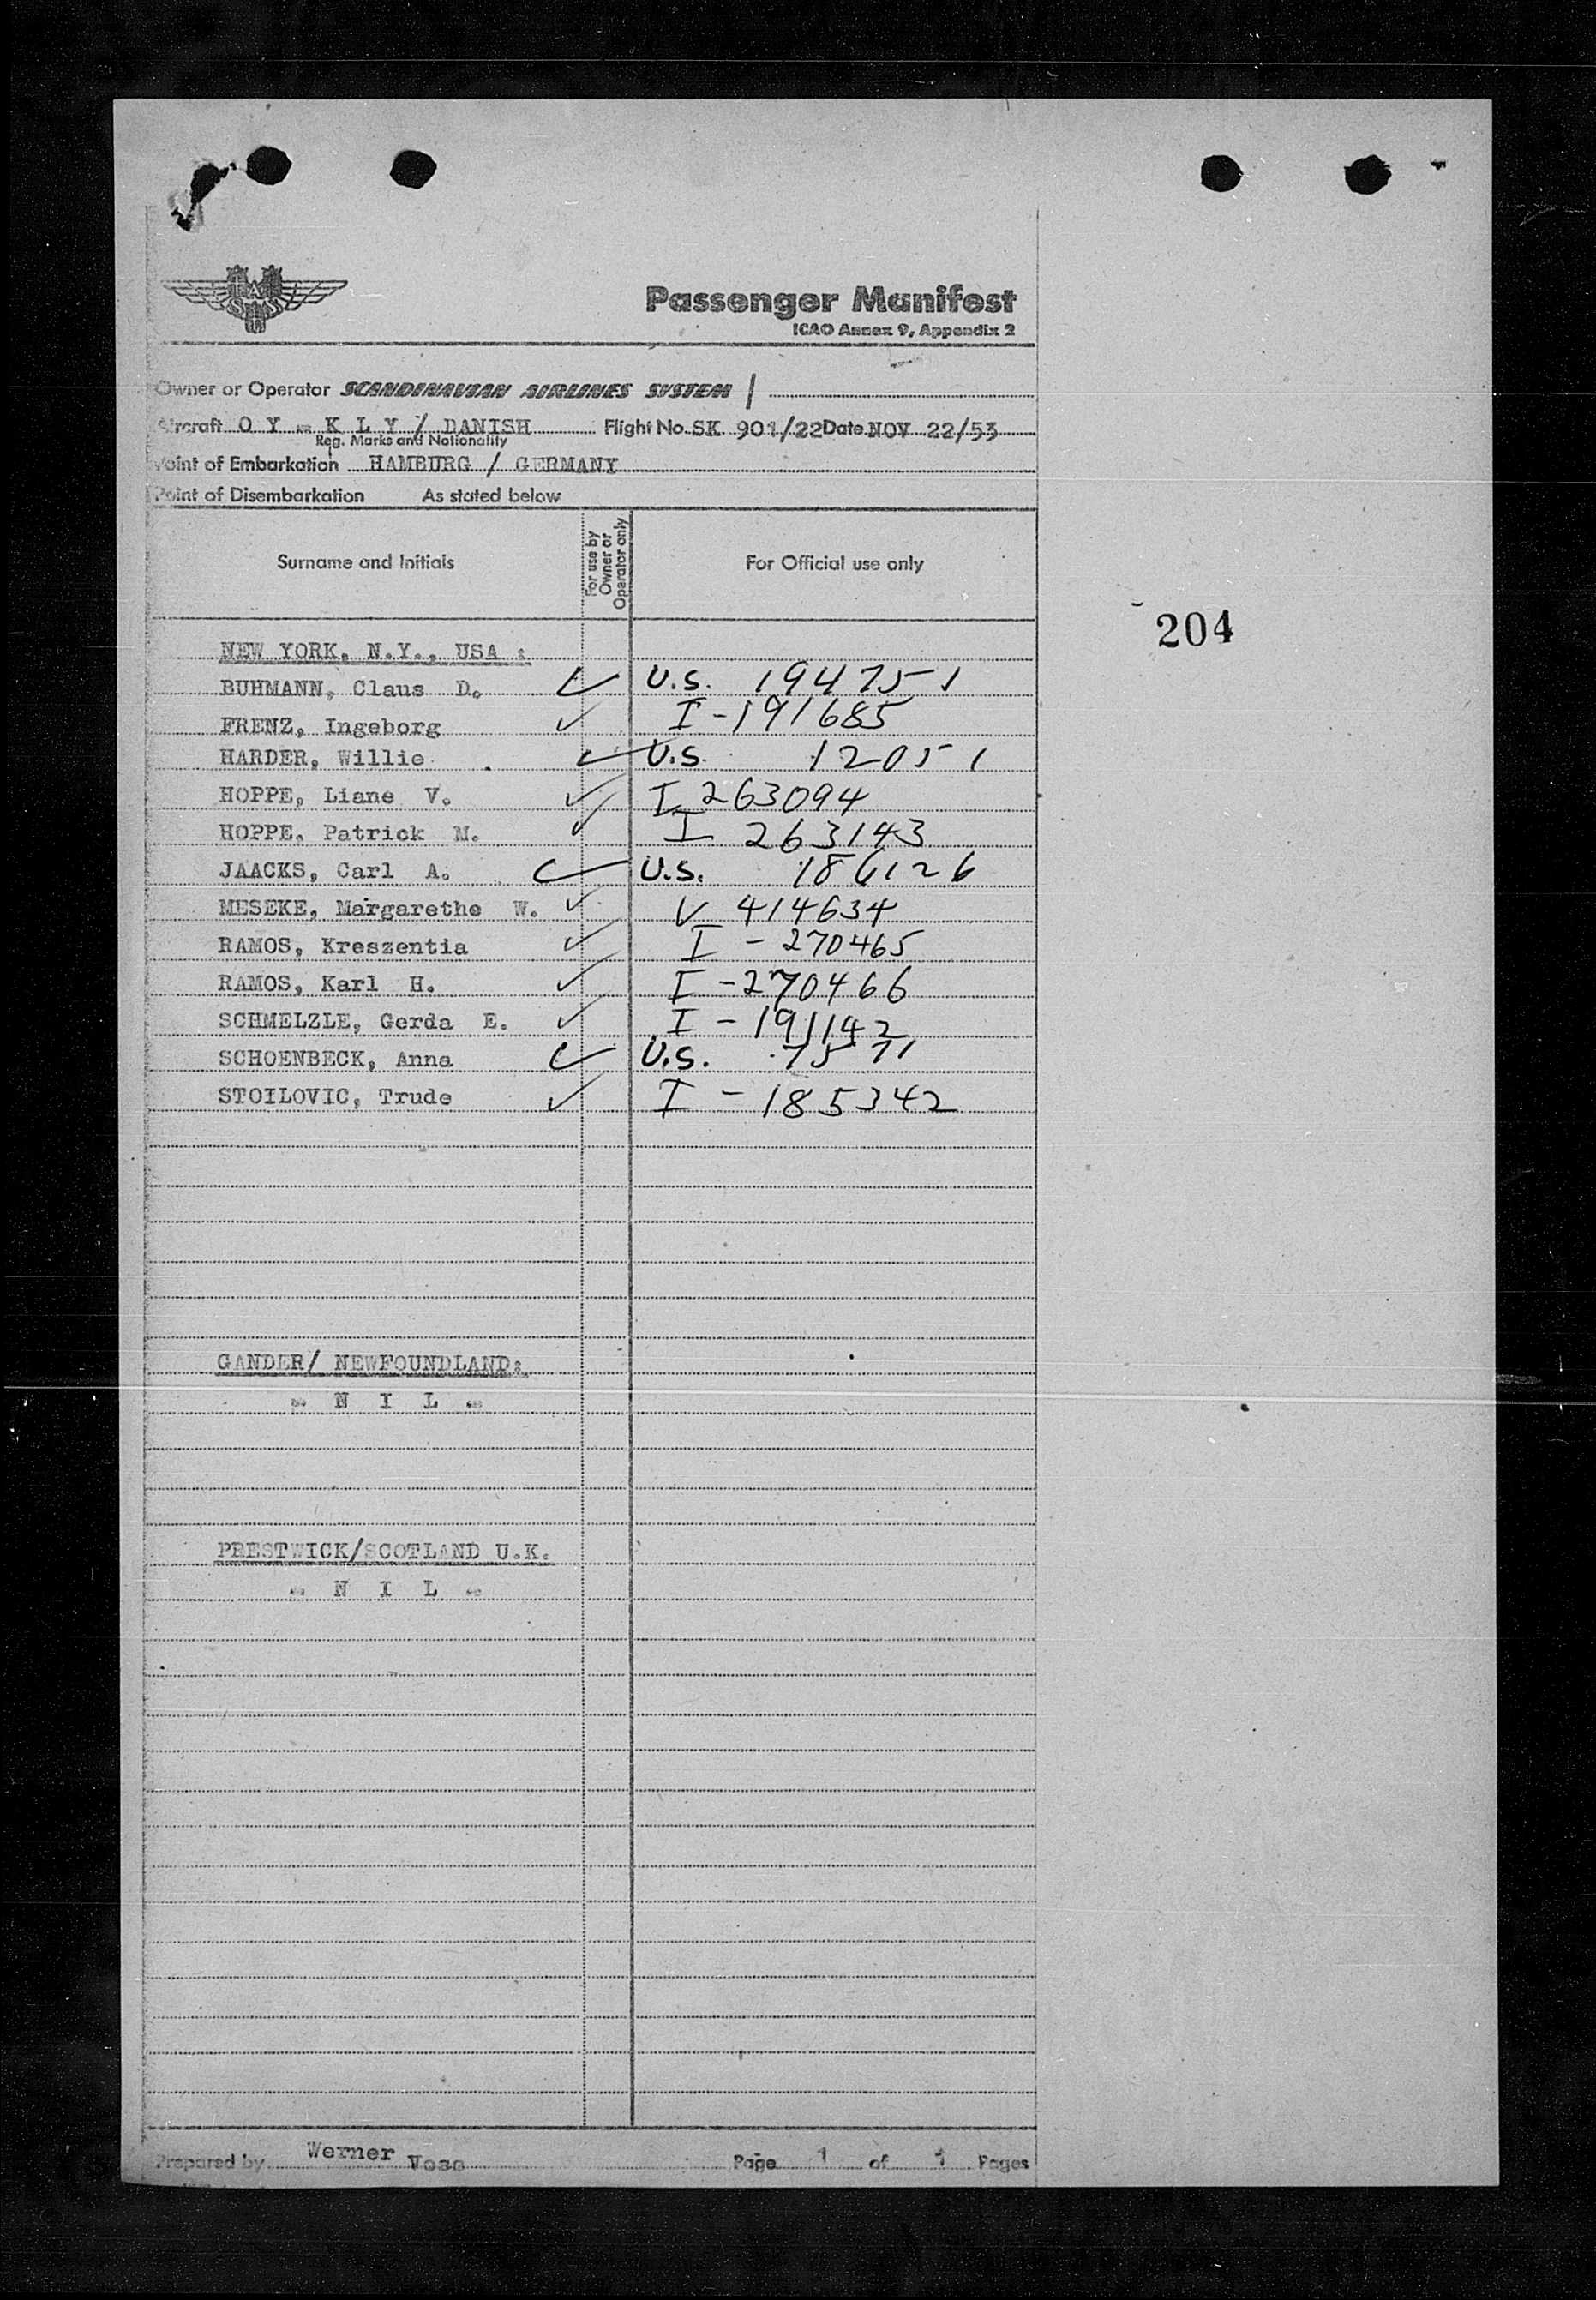 SAS
Passenger Manifest
ICAO Annex 9, Appendix 2
Owner or Operator SCANDINAVIAN AIRLINES SYSTEM /
Aircraft O Y - K L Y / DANISH Flight No. SK 901/22 Date NOV 22/53
Reg. Marks and Nationality
Point of Embarkation HAMBURG / GERMANY
Point of Disembarkation As stated below
Surname and Initials For use by Owner or Operator only For Official use only
204
NEW YORK, N.Y., USA :
BUHMANN, Claus D. ✓ U.S. 194751
FRENZ, Ingeborg ✓ I-191685
HARDER, Willie . ✓ U.S. 12051
HOPPE, Liane V. ✓ I 263094
HOPPE, Patrick M. ✓ I 263143
JAACKS, Carl A. ✓ U.S. 186126
MESEKE, Margarethe W. ✓ V 414634
RAMOS, Kreszentia ✓ I - 270465
RAMOS, Karl H. ✓ I - 270466
SCHMELZLE, Gerda E. ✓ I - 191142
SCHOENBECK, Anna ✓ U.S. 7571
STOILOVIC, Trude ✓ I - 185342
GANDER/ NEWFOUNDLAND:
- N I L -
PRESTWICK/SCOTLAND U.K.
- N I L -
Prepared by Werner Voss Page 1 of 1 Pages